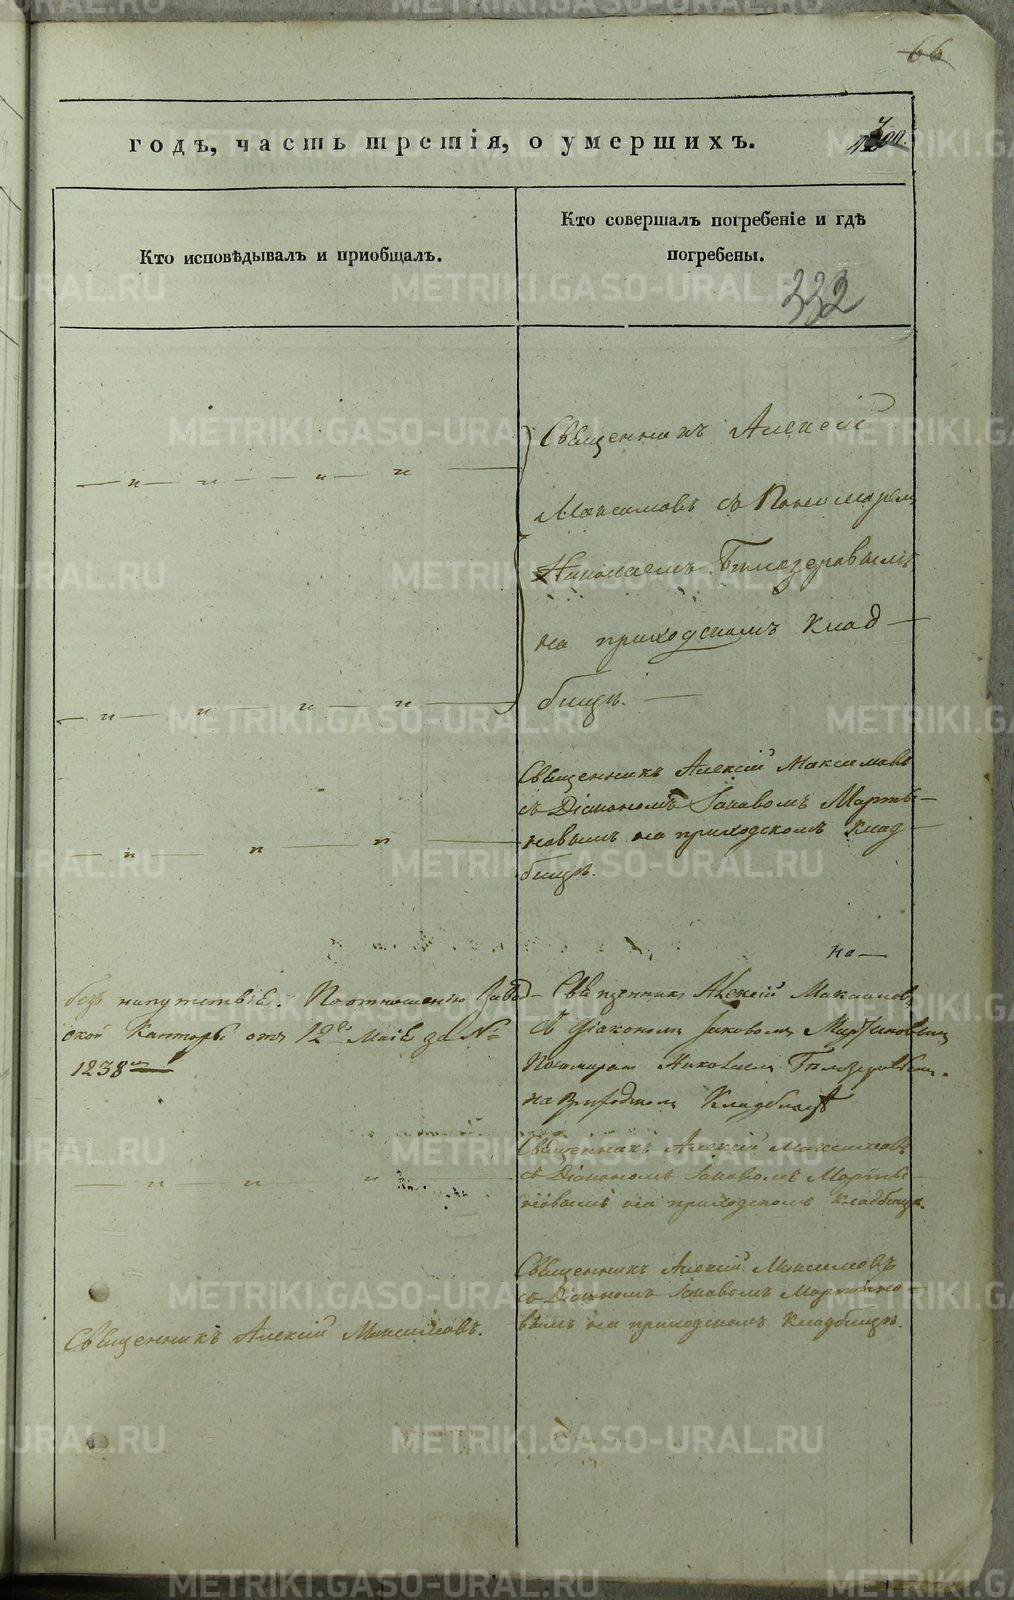 66
годъ, часть третія, о умершихъ.
Кто исповѣдывалъ и приобщалъ.
Кто совершалъ погребеніе и гдѣ
погребены.
332
Священникъ Алексій
Максимовъ съ Пономаремъ
Николаемъ Бѣлозеровымъ
на приходскомъ клад-
бищѣ.
Священникъ Алексій Максимовъ
съ Діакономъ Іаковомъ Марты-
новымъ на приходскомъ клад-
бищѣ.
безъ напутствія. По отношенію Завод-
ской Канторы отъ 12го Маія за №
1238мъ
Священникъ Алексій Максимовъ
съ Діакономъ Іаковомъ Мартиновымъ
Пономаремъ Николаемъ Бѣлозеровымъ
на приходскомъ Кладбищѣ
Священникъ Алексій Максимовъ
съ Діакономъ Іаковомъ Марты-
новымъ на приходскомъ кладбищѣ.
Священникъ Алексій Максимовъ.
Священникъ Алексій Максимовъ
съ Діакономъ Іаковомъ Мартыно-
вымъ на приходскомъ Кладбищѣ.
METRIKI.GASO-URAL.RU